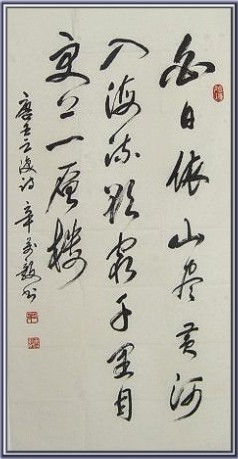 白日依山尽黄河
入海流欲穷千里目
更上一层楼
唐王之涣诗 辛 书